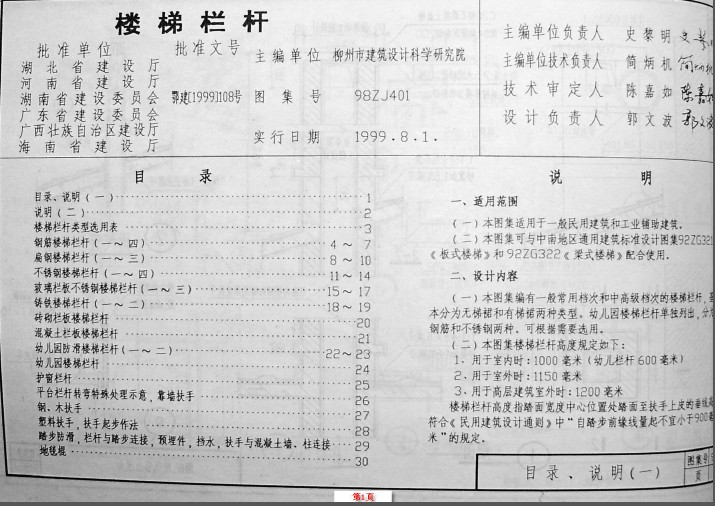 楼梯栏杆
批准单位 批准文号
湖北省建设厅
河南省建设厅
湖南省建设委员会 鄂建[1999]108号
广东省建设委员会
广西壮族自治区建设厅
海南省建设厅
主编单位 柳州市建筑设计科学研究院
图集号 98ZJ401
实行日期 1999.8.1.
主编单位负责人 史黎明
主编单位技术负责人 简炳机
技术审定人 陈嘉如
设计负责人 郭文波
目录
目录、说明(一) 1
说明(二) 2
楼梯栏杆类型选用表 3
钢筋楼梯栏杆(一~四) 4~7
扁钢楼梯栏杆(一~三) 8~10
不锈钢楼梯栏杆(一~四) 11~14
玻璃栏板不锈钢楼梯栏杆(一~三) 15~17
铸铁楼梯栏杆(一~二) 18~19
砖砌栏板楼梯栏杆 20
混凝土栏板楼梯栏杆 21
幼儿园防滑楼梯栏杆(一~二) 22~23
幼儿园楼梯栏杆 24
护窗栏杆 25
平台栏杆转弯特殊处理示意,靠墙扶手 26
钢、木扶手 27
塑料扶手,扶手起步作法 28
踏步防滑,栏杆与踏步连接,预埋件,挡水,扶手与混凝土墙、柱连接 29
地毯棍 30
说明
一、适用范围
(一)本图集适用于一般民用建筑和工业辅助建筑。
(二)本图集可与中南地区通用建筑标准设计图集92ZG321
《板式楼梯》和92ZG322《梁式楼梯》配合使用。
二、设计内容
(一)本图集编有一般常用档次和中高级档次的楼梯栏杆,基
本分为无梯裙和有梯裙两种类型。幼儿园楼梯栏杆单独列出,分为
钢筋和不锈钢两种。可根据需要选用。
(二)本图集楼梯栏杆高度规定如下:
1、用于室内时:1000毫米(幼儿栏杆600毫米)
2、用于室外时:1150毫米
3、用于高层建筑室外时:1200毫米
楼梯栏杆高度指踏面宽度中心位置处踏面至扶手上皮的垂线高
符合《民用建筑设计通则》中“自踏步前缘线量起不宜小于900毫
米”的规定。
目录、说明(一)
图集号
页
第1页